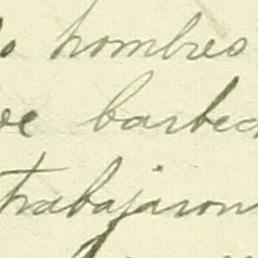 hombres
barbec
trabajaron